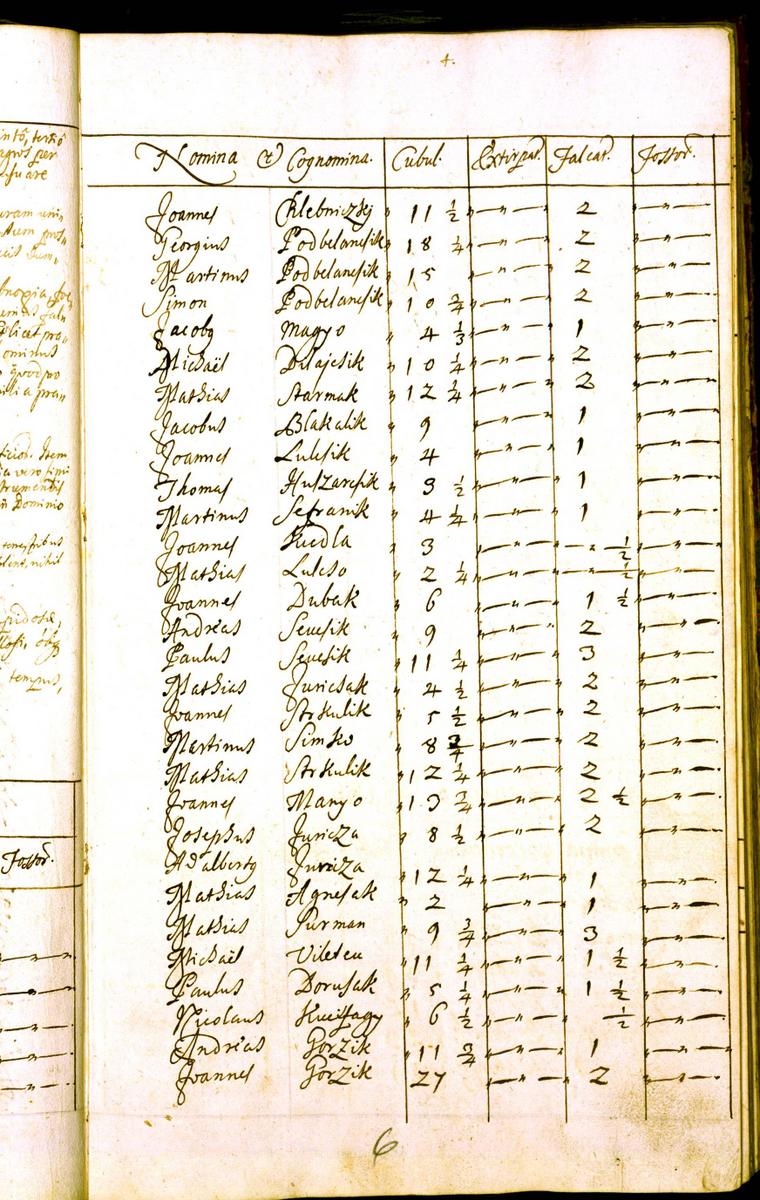 4.
Nomina & Cognomina. Cubul. Extirpat. Falcat. Fossor.
Joannes Chlebniczkj " 11 1/2 2
Georgius Podbelancsik " 18 1/4 2
Martinus Podbelancsik " 15 2
Simon Podbelancsik " 10 3/4 2
Jacobg Magyo " 4 1/3 1
Michaël " 10 1/4 2
Mathias Starmak " 12 1/4 2
Jacobus Blakalik " 9 1
Joannes Lulcsik " 4 1
Thomas Huszarcsik " 3 1/2 1
Martinus Sefranik " 4 1/4 1
Joannes " 3 1/2
Mathias Lulcso " 2 1/4 1/2
Joannes Dubak " 6 1 1/2
Andreas Sevcsik " 9 2
Paulus Sevcsik " 11 1/4 3
Mathias Juricsak " 4 1/2 2
Joannes Strkulik " 5 1/2 2
Martinus Simko " 8 3/4 2
Mathias Strkulik " 12 1/4 2
Joannes Manyo " 13 3/4 2 1/2
Josephus Juricza " 8 1/2 2
Adalbertg Juricza " 12 1/4 1
Mathias Agnesak " 2 1
Mathias Surman " 9 3/4 3
Michaël " 11 1/4 1 1/2
Paulus Dorusak " 5 1/4 1 1/2
Nicolaus " 6 1/2 1/2
Andreas Gorzik " 11 3/4 1
Joannes Gorzik 27 2
6
Fossor.